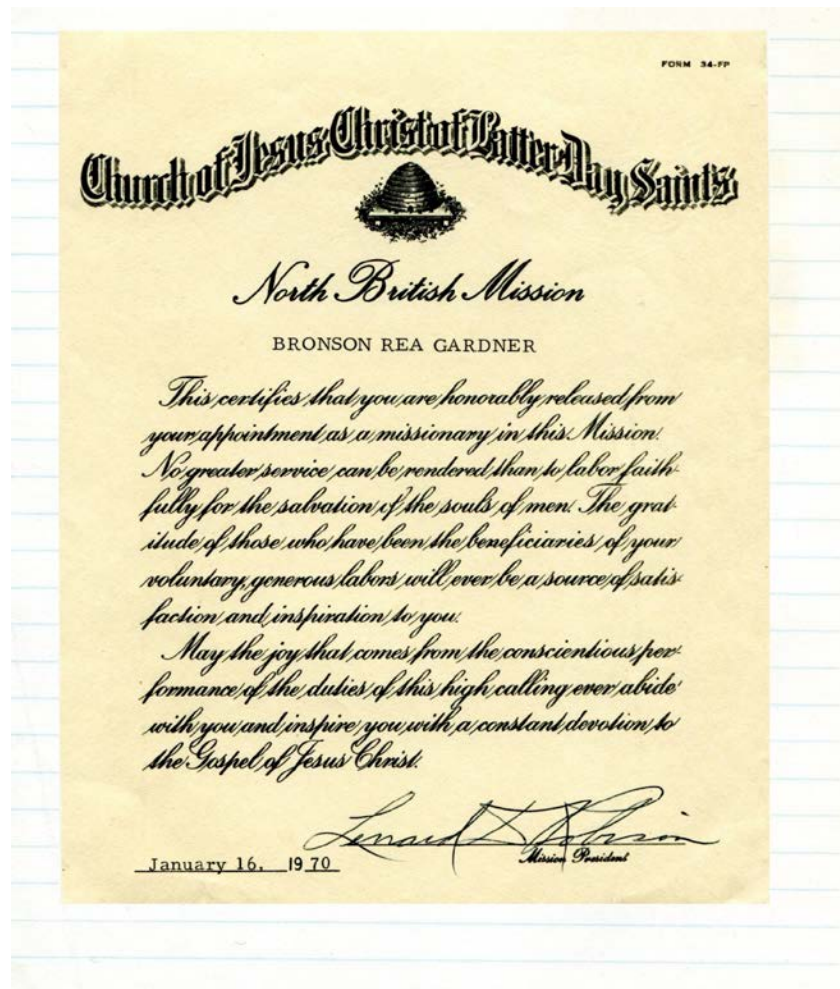 FORM 34-FP
Church of Jesus Christ of Latter Day Saints
North British Mission
BRONSON REA GARDNER
This certifies that you are honorably released from
your appointment as a missionary in this Mission.
No greater service can be rendered than to labor faith-
fully for the salvation of the souls of men. The grat-
itude of those who have been the beneficiaries of your
voluntary, generous labors will ever be a source of satis-
faction and inspiration to you.
May the joy that comes from the conscientious per-
formance of the duties of this high calling ever abide
with you and inspire you with a constant devotion to
the Gospel of Jesus Christ.
Robison
January 16, 1970
Mission President